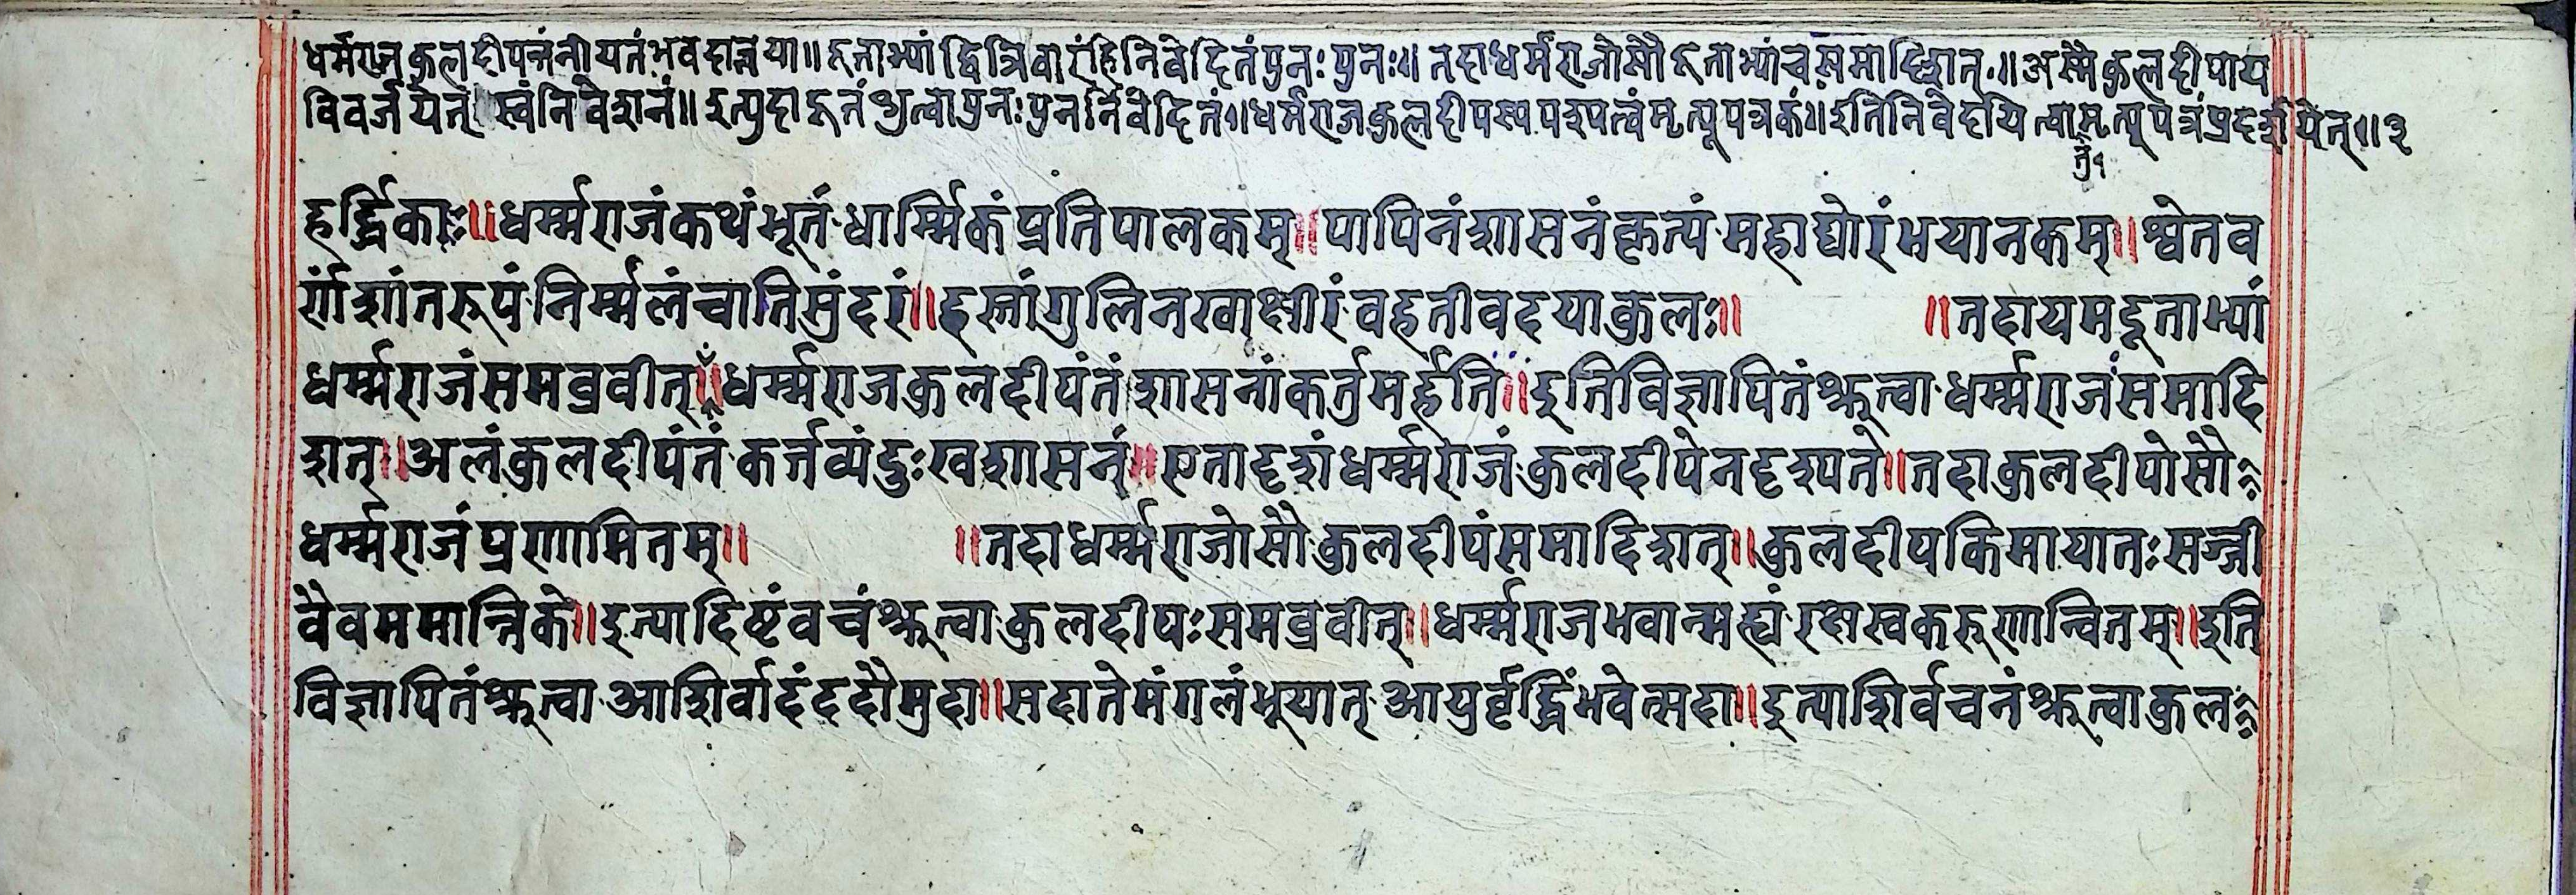 धर्मराज कुलदीपन्तंनीयतं भवदाज्ञया॥ दूताभ्यां द्वित्रिवारंहि निवेदितं पुनः पुनः॥ तदाधर्मराजोसौ दूताभ्यांच समादिशत्॥ अस्मै कुलदीपाय
विवर्जयेत् स्वंनिवेशनं॥ इत्युदाहृतं श्रुत्वा पुनः पुनर्निवेदितं॥ धर्मराज कुलदीपस्य पश्यत्वं मृत्यूपत्रकं॥ इतिनिवेदयित्वा मृत्यूपत्रं प्रदर्शयेत्॥ ३
हर्द्धिकाः॥धर्म्मराजंकथंभूतं धार्म्मिकंप्रतिपालकम्॥पापिनंशासनंकृत्यं महाघोरंभयानकम्॥श्वेतव
र्णंशांतरूपं निर्म्मलंचातिसुंदरं॥हस्तांगुलिनखाक्षीरं वहतीवदयाकुलः॥ ॥तदायमदूताभ्यां
धर्म्मराजंसमब्रवीत्॥धर्म्मराजकुलदीपंतं शासनांकर्तुमर्हति॥इतिविज्ञापितंश्रुत्वा धर्म्मराजंसमादि
शत्॥अलंकुलदीपंतं कर्तव्यंदुःखशासनं॥एतादृशंधर्म्मराजं कुलदीपेनदृश्यते॥तदाकुलदीपोसौ
धर्म्मराजंप्रणामितम्॥ ॥तदाधर्म्मराजोसौ कुलदीपंसमादिशत्॥कुलदीपकिमायातः सज्जी
वैवममान्तिके॥इत्यादिष्टंवचंश्रुत्वा कुलदीपःसमब्रवीत्॥धर्म्मराजभवान्मह्यं रक्षस्वकरुणान्वितम्॥इति
विज्ञापितंश्रुत्वा आशिर्वादंददौमुदा॥सदातेमंगलंभूयात् आयुर्वृद्धिंभवेत्सदा॥इत्याशिर्वचनंश्रुत्वाकुल